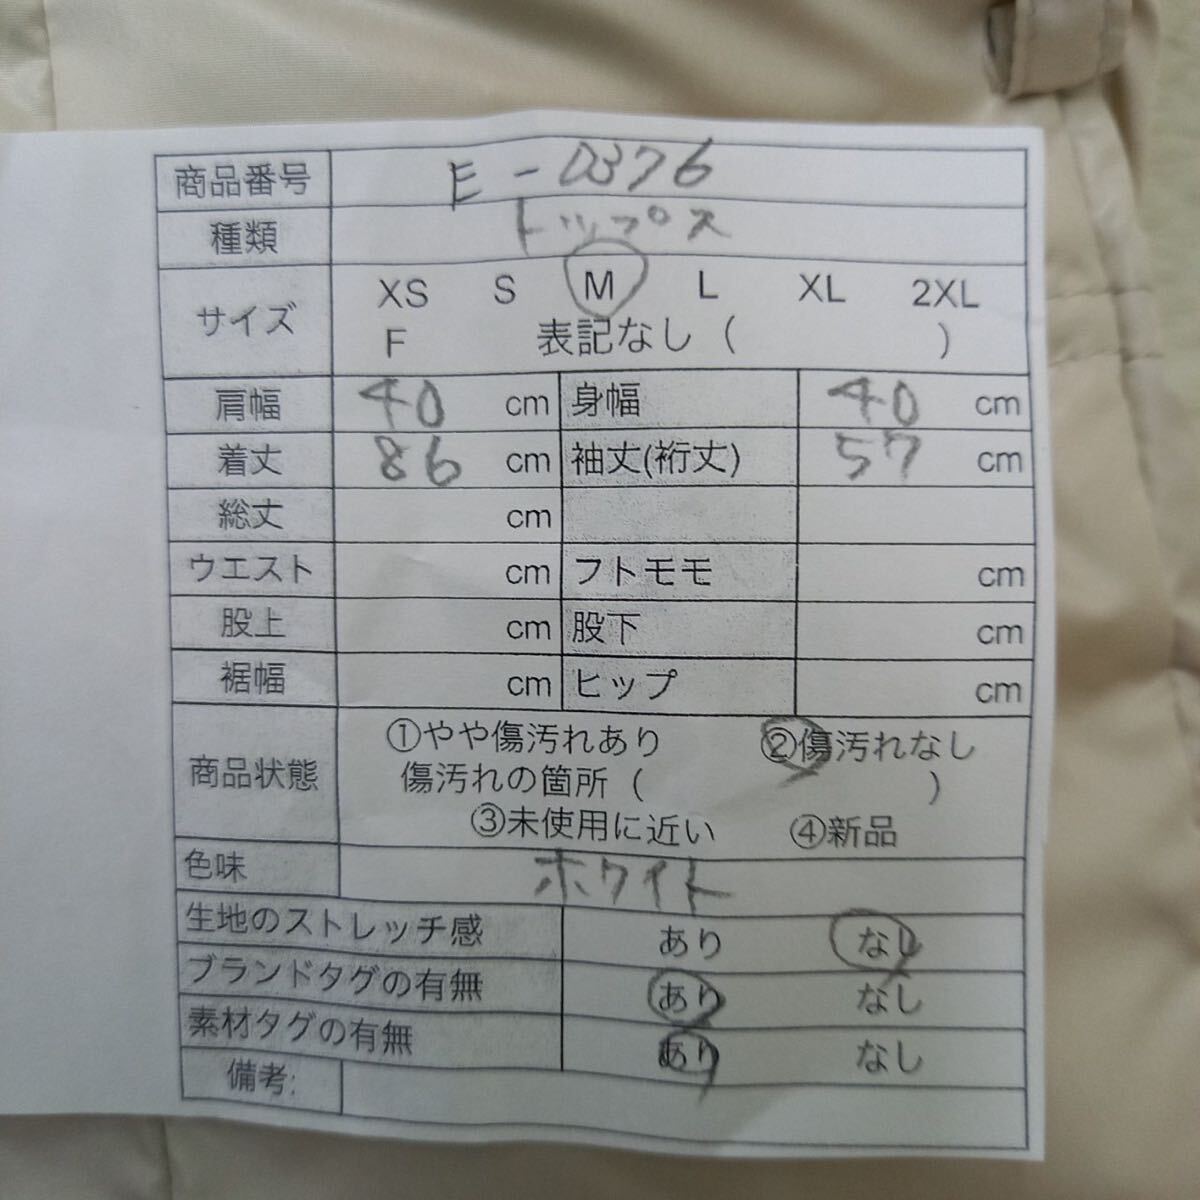 商品番号 E-0376
種類 トップス
サイズ XS S M L XL 2XL
F 表記なし ( )
肩幅 40 cm 身幅 40 cm
着丈 86 cm 袖丈(裄丈) 57 cm
総丈 cm
ウエスト cm フトモモ cm
股上 cm 股下 cm
裾幅 cm ヒップ cm
商品状態 ①やや傷汚れあり ②傷汚れなし
傷汚れの箇所 ( )
③未使用に近い ④新品
色味 ホワイト
生地のストレッチ感 あり なし
ブランドタグの有無 あり なし
素材タグの有無 あり なし
備考: